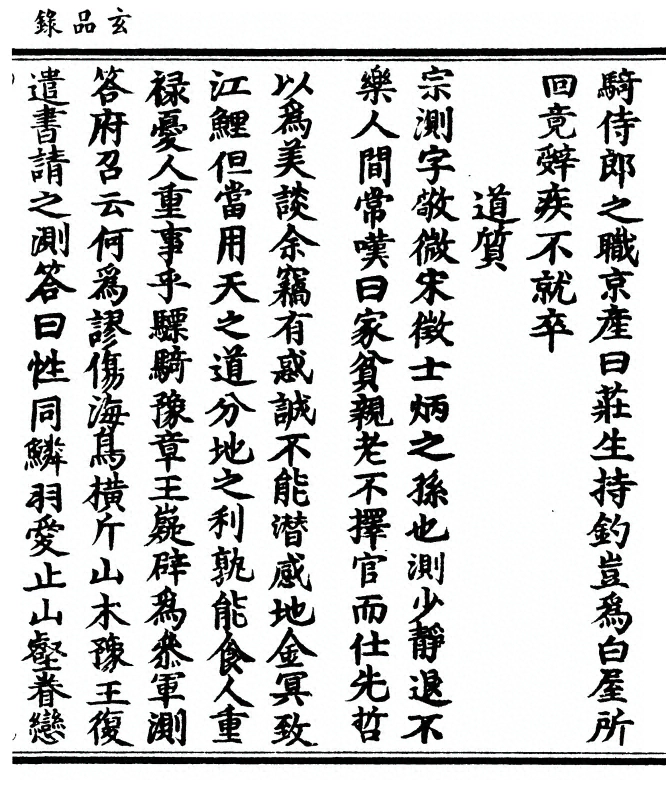 玄品錄
騎侍郎之職京産曰莊生持釣豈爲白屋所
回竟辤疾不就卒
道質
宗測字敬微宋徵士炳之孫也測少靜退不
樂人間常嘆曰家貧親老不擇官而仕先哲
以爲美談余竊有惑誠不能潛感地金冥致
江鯉但當用天之道分地之利孰能食人重
禄憂人重事乎驃騎豫章王嶷辟爲叅軍測
答府召云何爲謬傷海鳥橫斤山木豫王復
遣書請之測答曰性同鱗羽愛止山壑眷戀